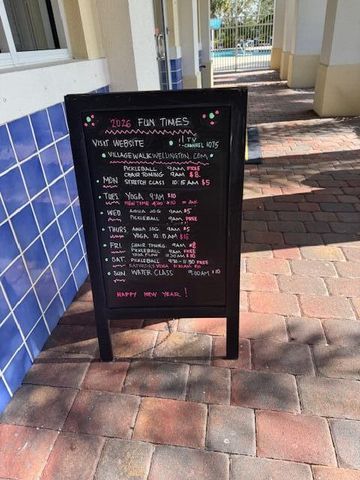 2026 FUN TIMES
VISIT WEBSITE
! TV
CHANNEL 1075
VILLAGEWALKWELLINGTON.COM
PICKLEBALL 9AM FREE
MON CHAIR TONING 9AM $8
STRETCH CLASS 10:15AM $5
TUES YOGA 9AM $10
NEW TIME
WED AQUA JOG 9AM $5
PICKLEBALL 9AM FREE
THURS AQUA JOG 9AM $5
YOGA $10
FRI CHAIR TONING 9AM $8
PICKLEBALL 9AM FREE
YOGA FLOW 8:30AM $10
SAT. PICKLEBALL FREE
SATURDAY YOGA
SUN WATER CLASS 9:00AM $10
HAPPY NEW YEAR!